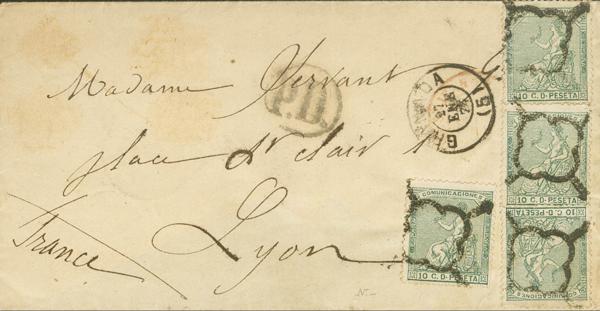 Madame Servant
place St Clair 1
Lyon
France
P.D.
GRANADA
(15)
ENE
10 C. D. PESETA
10 C. D. PESETA
10 C. D. PESETA
COMUNICACIONES
10 C. D. PESETA
COMUNICACIONES